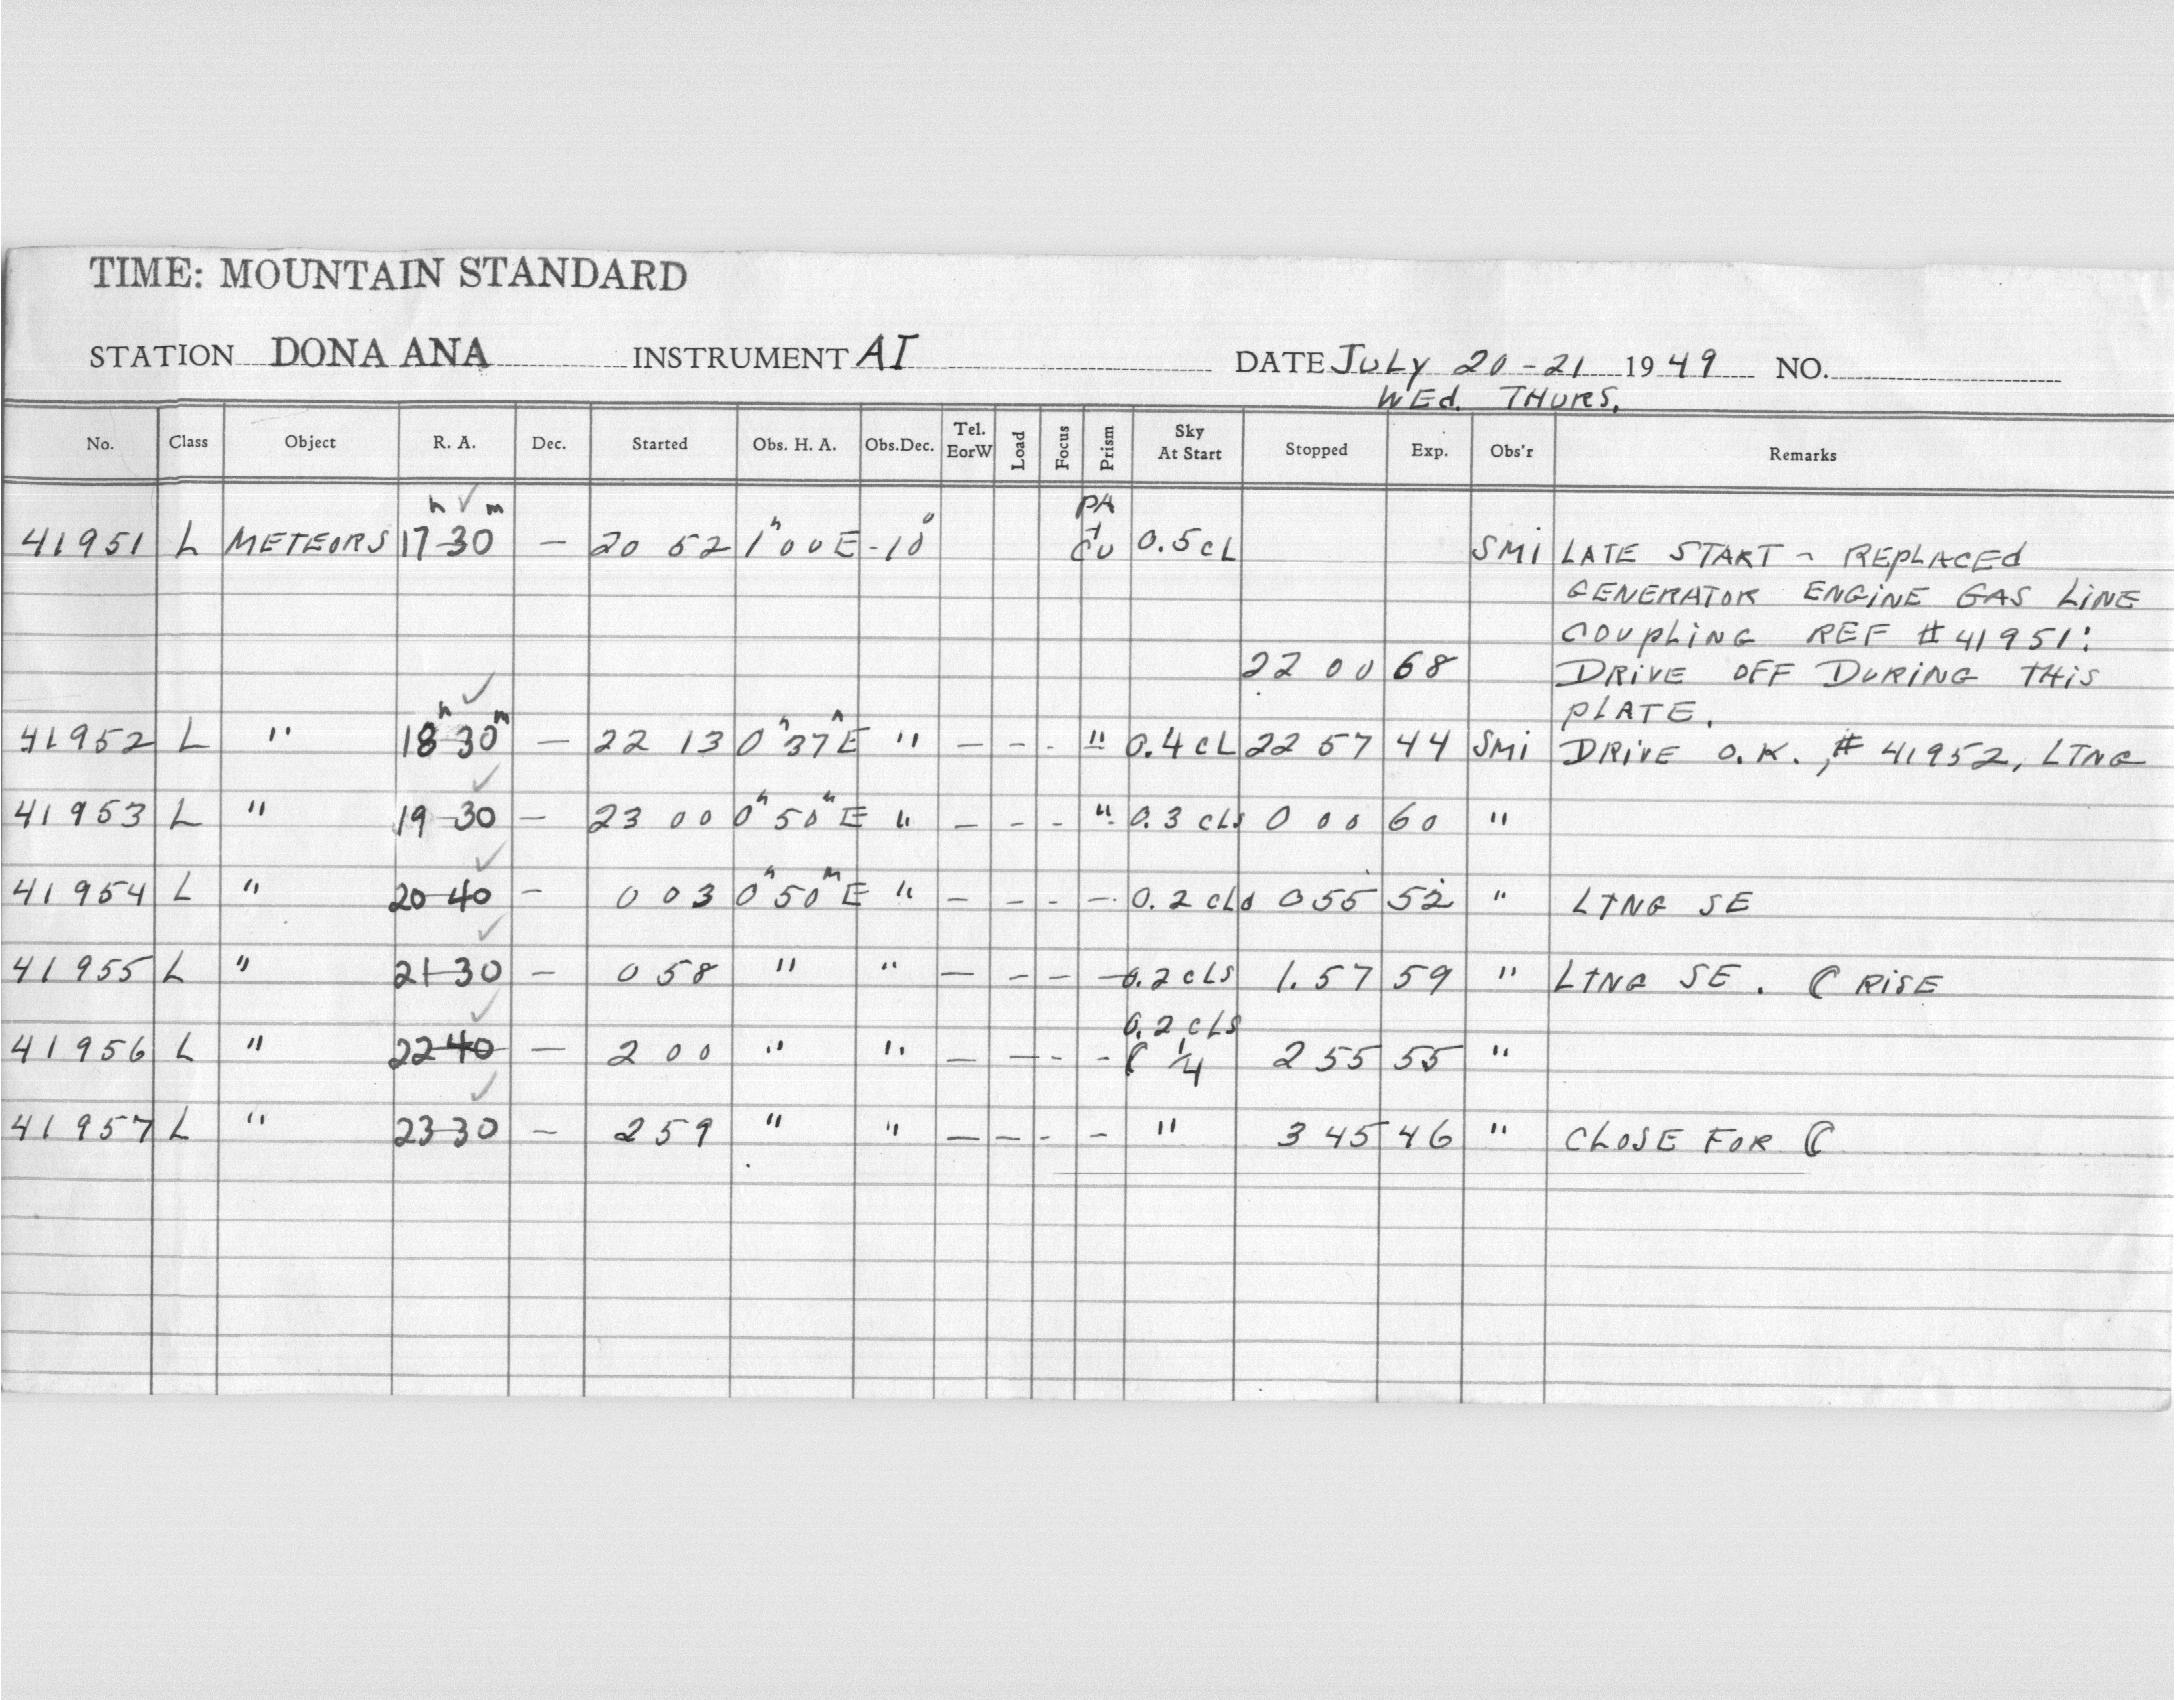 TIME: MOUNTAIN STANDARD
STATION DONA ANA INSTRUMENT AI DATE JULY 20-21 1949 NO.
WEd. THURS.
No. Class Object R. A. Dec. Started Obs. H. A. Obs.Dec. Tel. EorW Load Focus Prism Sky At Start Stopped Exp. Obs'r Remarks
h ✓ m PA
41951 L METEORS 17-30 — 20 52 1h00E -10° + Cu 0.5 cL SMi LATE START - REPLACEd
GENERATOR ENGINE GAS LINE
COUPLING REF # 41951:
22 00 68 DRIVE OFF DURING THIS
PLATE.
41952 L " 18h30m — 22 13 0h37mE " — - - " 0.4 cL 22 57 44 SMi DRIVE O.K., # 41952, LTNG
41953 L " 19-30 — 23 00 0h50mE " — - - " 0.3 cLs 0 00 60 "
41954 L " 20-40 - 0 03 0h50mE " — - - — 0.2 cLs 0 55 52 " LTNG SE
41955 L " 21-30 — 0 58 " " — - - — 0.2 cLS 1.57 59 " LTNG SE. ☾ RISE
0.2 cLS
41956 L " 22-40 — 2 00 " " — — - - ☾ 1/4 2 55 55 "
41957 L " 23-30 — 2 59 " " — — - - " 3 45 46 " CLOSE FOR ☾